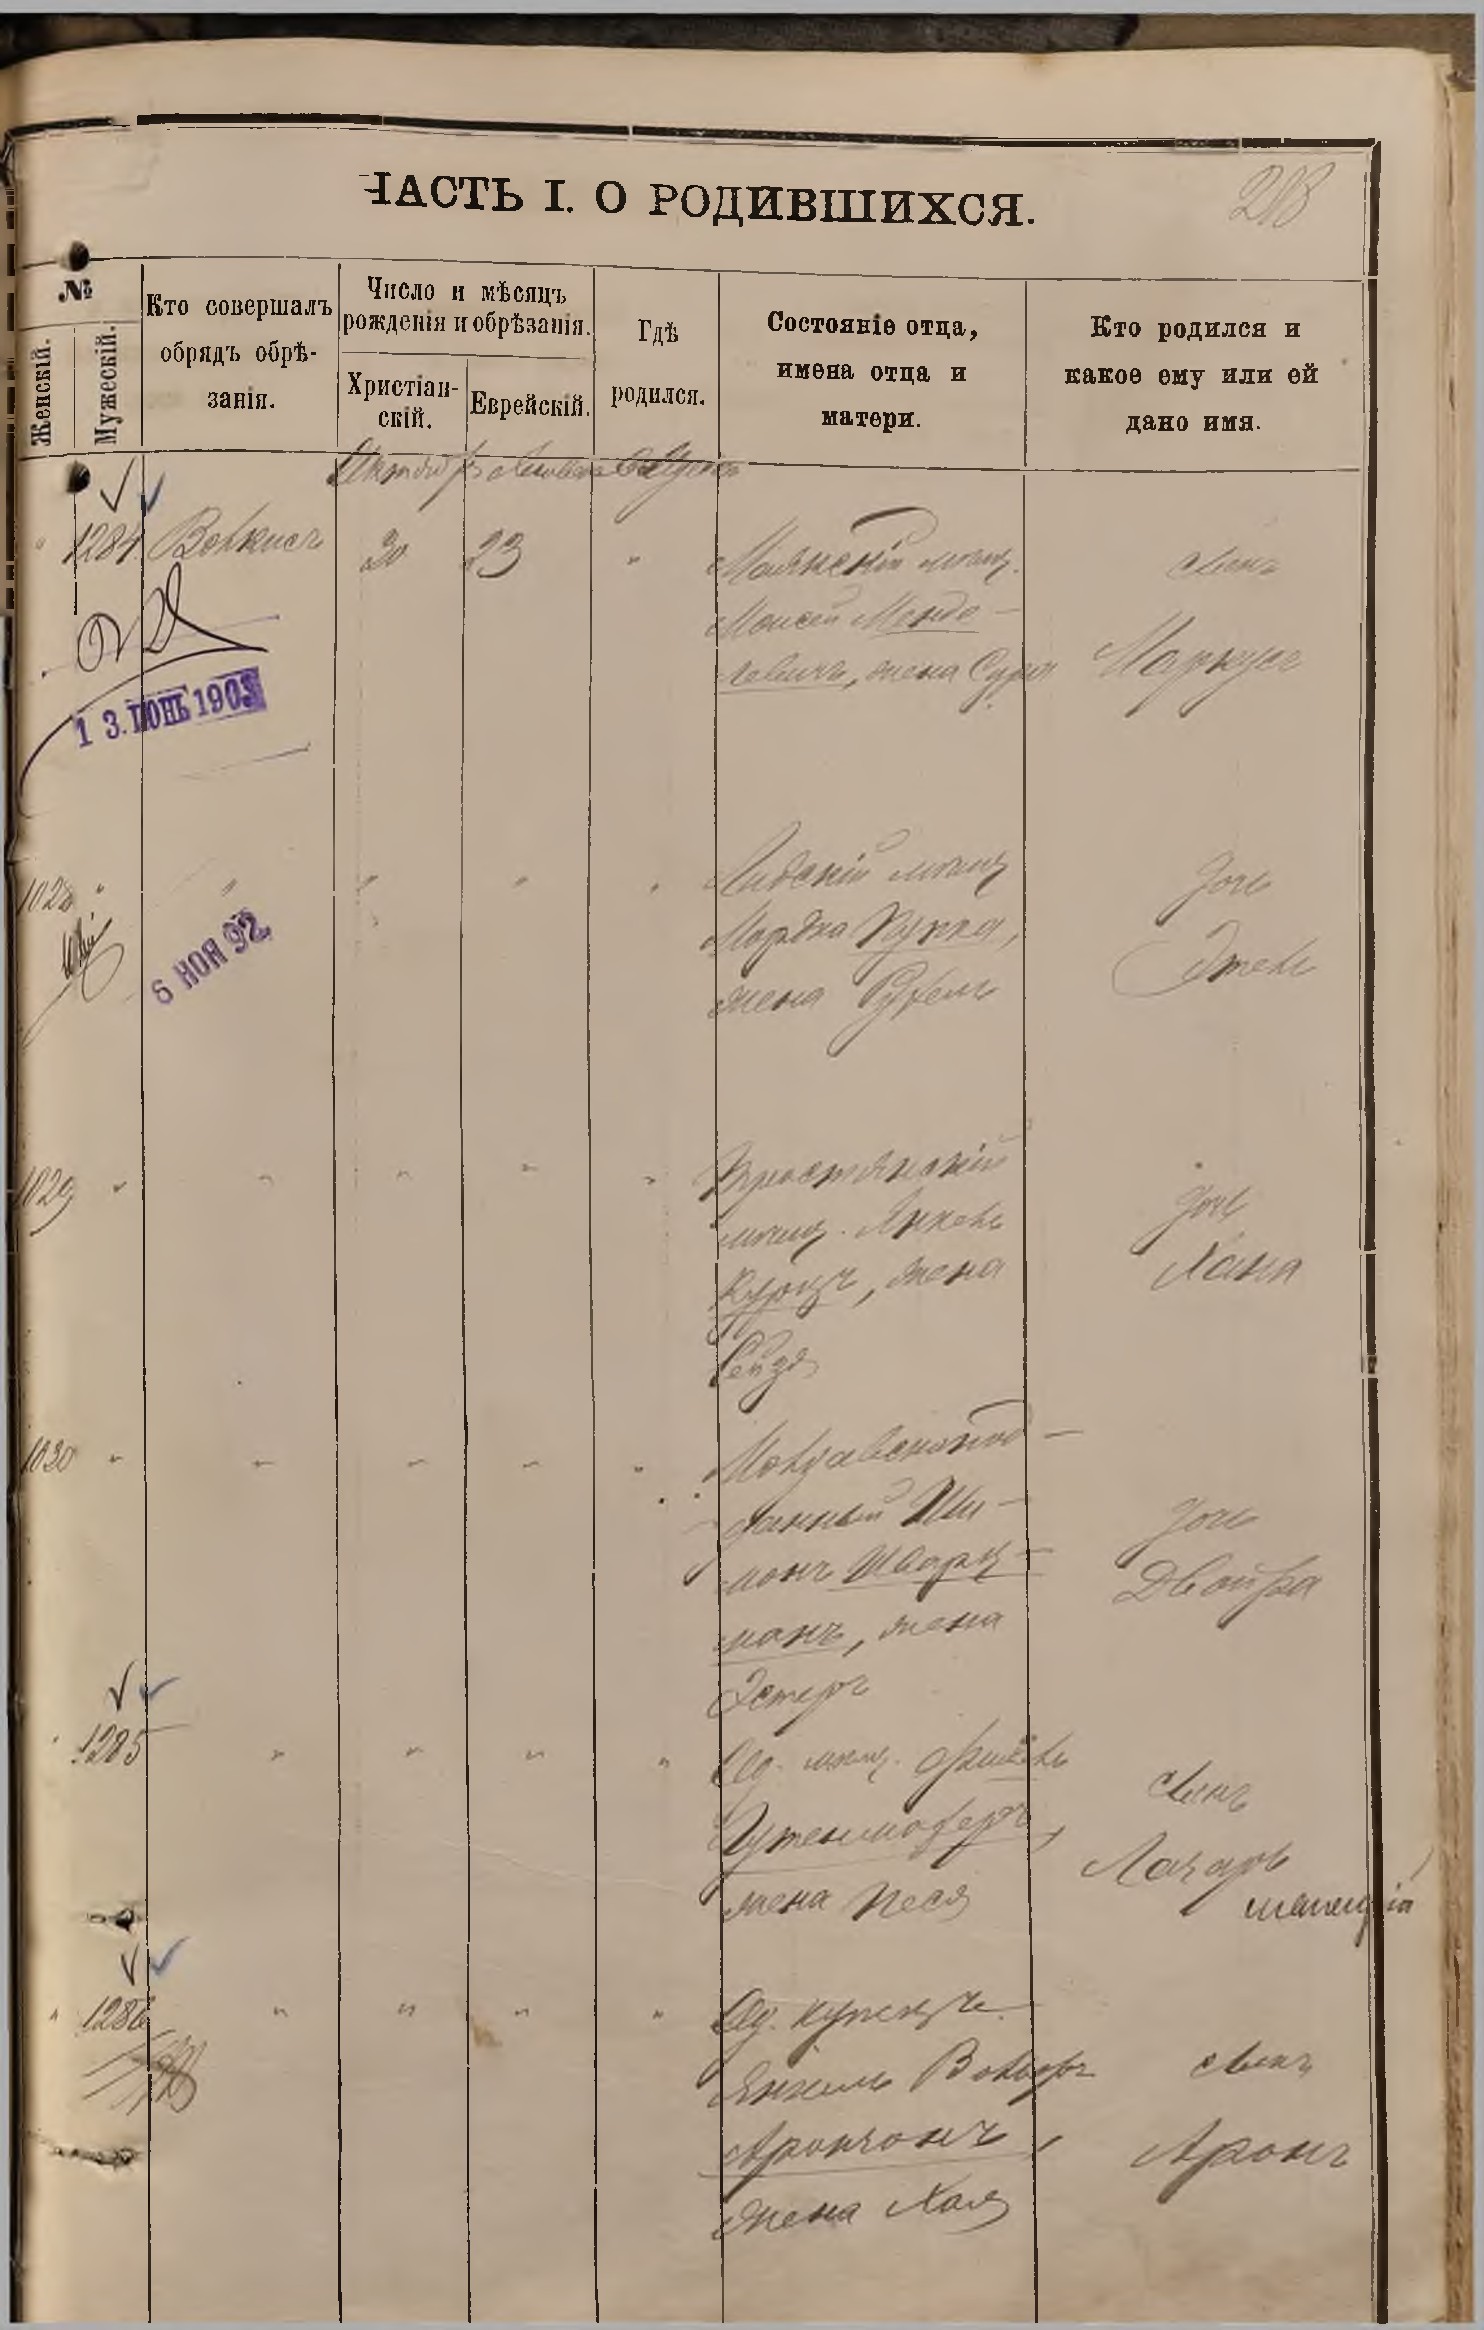 ЧАСТЬ I. О РОДИВШИХСЯ.
218
№
Женскій.
Мужескій.
Кто совершалъ
обрядъ обрѣ-
занія.
Число и мѣсяцъ
рожденія и обрѣзанія.
Христіан-
скій.
Еврейскій.
Гдѣ
родился.
Состояніе отца,
имена отца и
матери.
Кто родился и
какое ему или ей
дано имя.
Октябрь
1284
30
23
"
мѣщ.
Моисей Менде-
левичъ, жена Сура
сынъ
Маркусъ
13. ІЮНЬ 1903
1028 " " " " "
Лидскій мѣщ
Мордко
жена Рухель
дочь
Этель
6 НОЯ 92
1029 " " " " "
мѣщ. Янкель
Курцъ, жена
Рейзя
дочь
Хана
1030 " " " " "
данный Ши-
монъ Шварц-
манъ, жена
Эстеръ
дочь
Двойра
" 1285 " " " "
Од. мѣщ.
Гутенмахеръ,
жена Песя
сынъ
Лазарь
" 1286 " " " "
Од. купецъ
Янкель Вольфъ
Аронзонъ,
жена Хая
сынъ
Аронъ